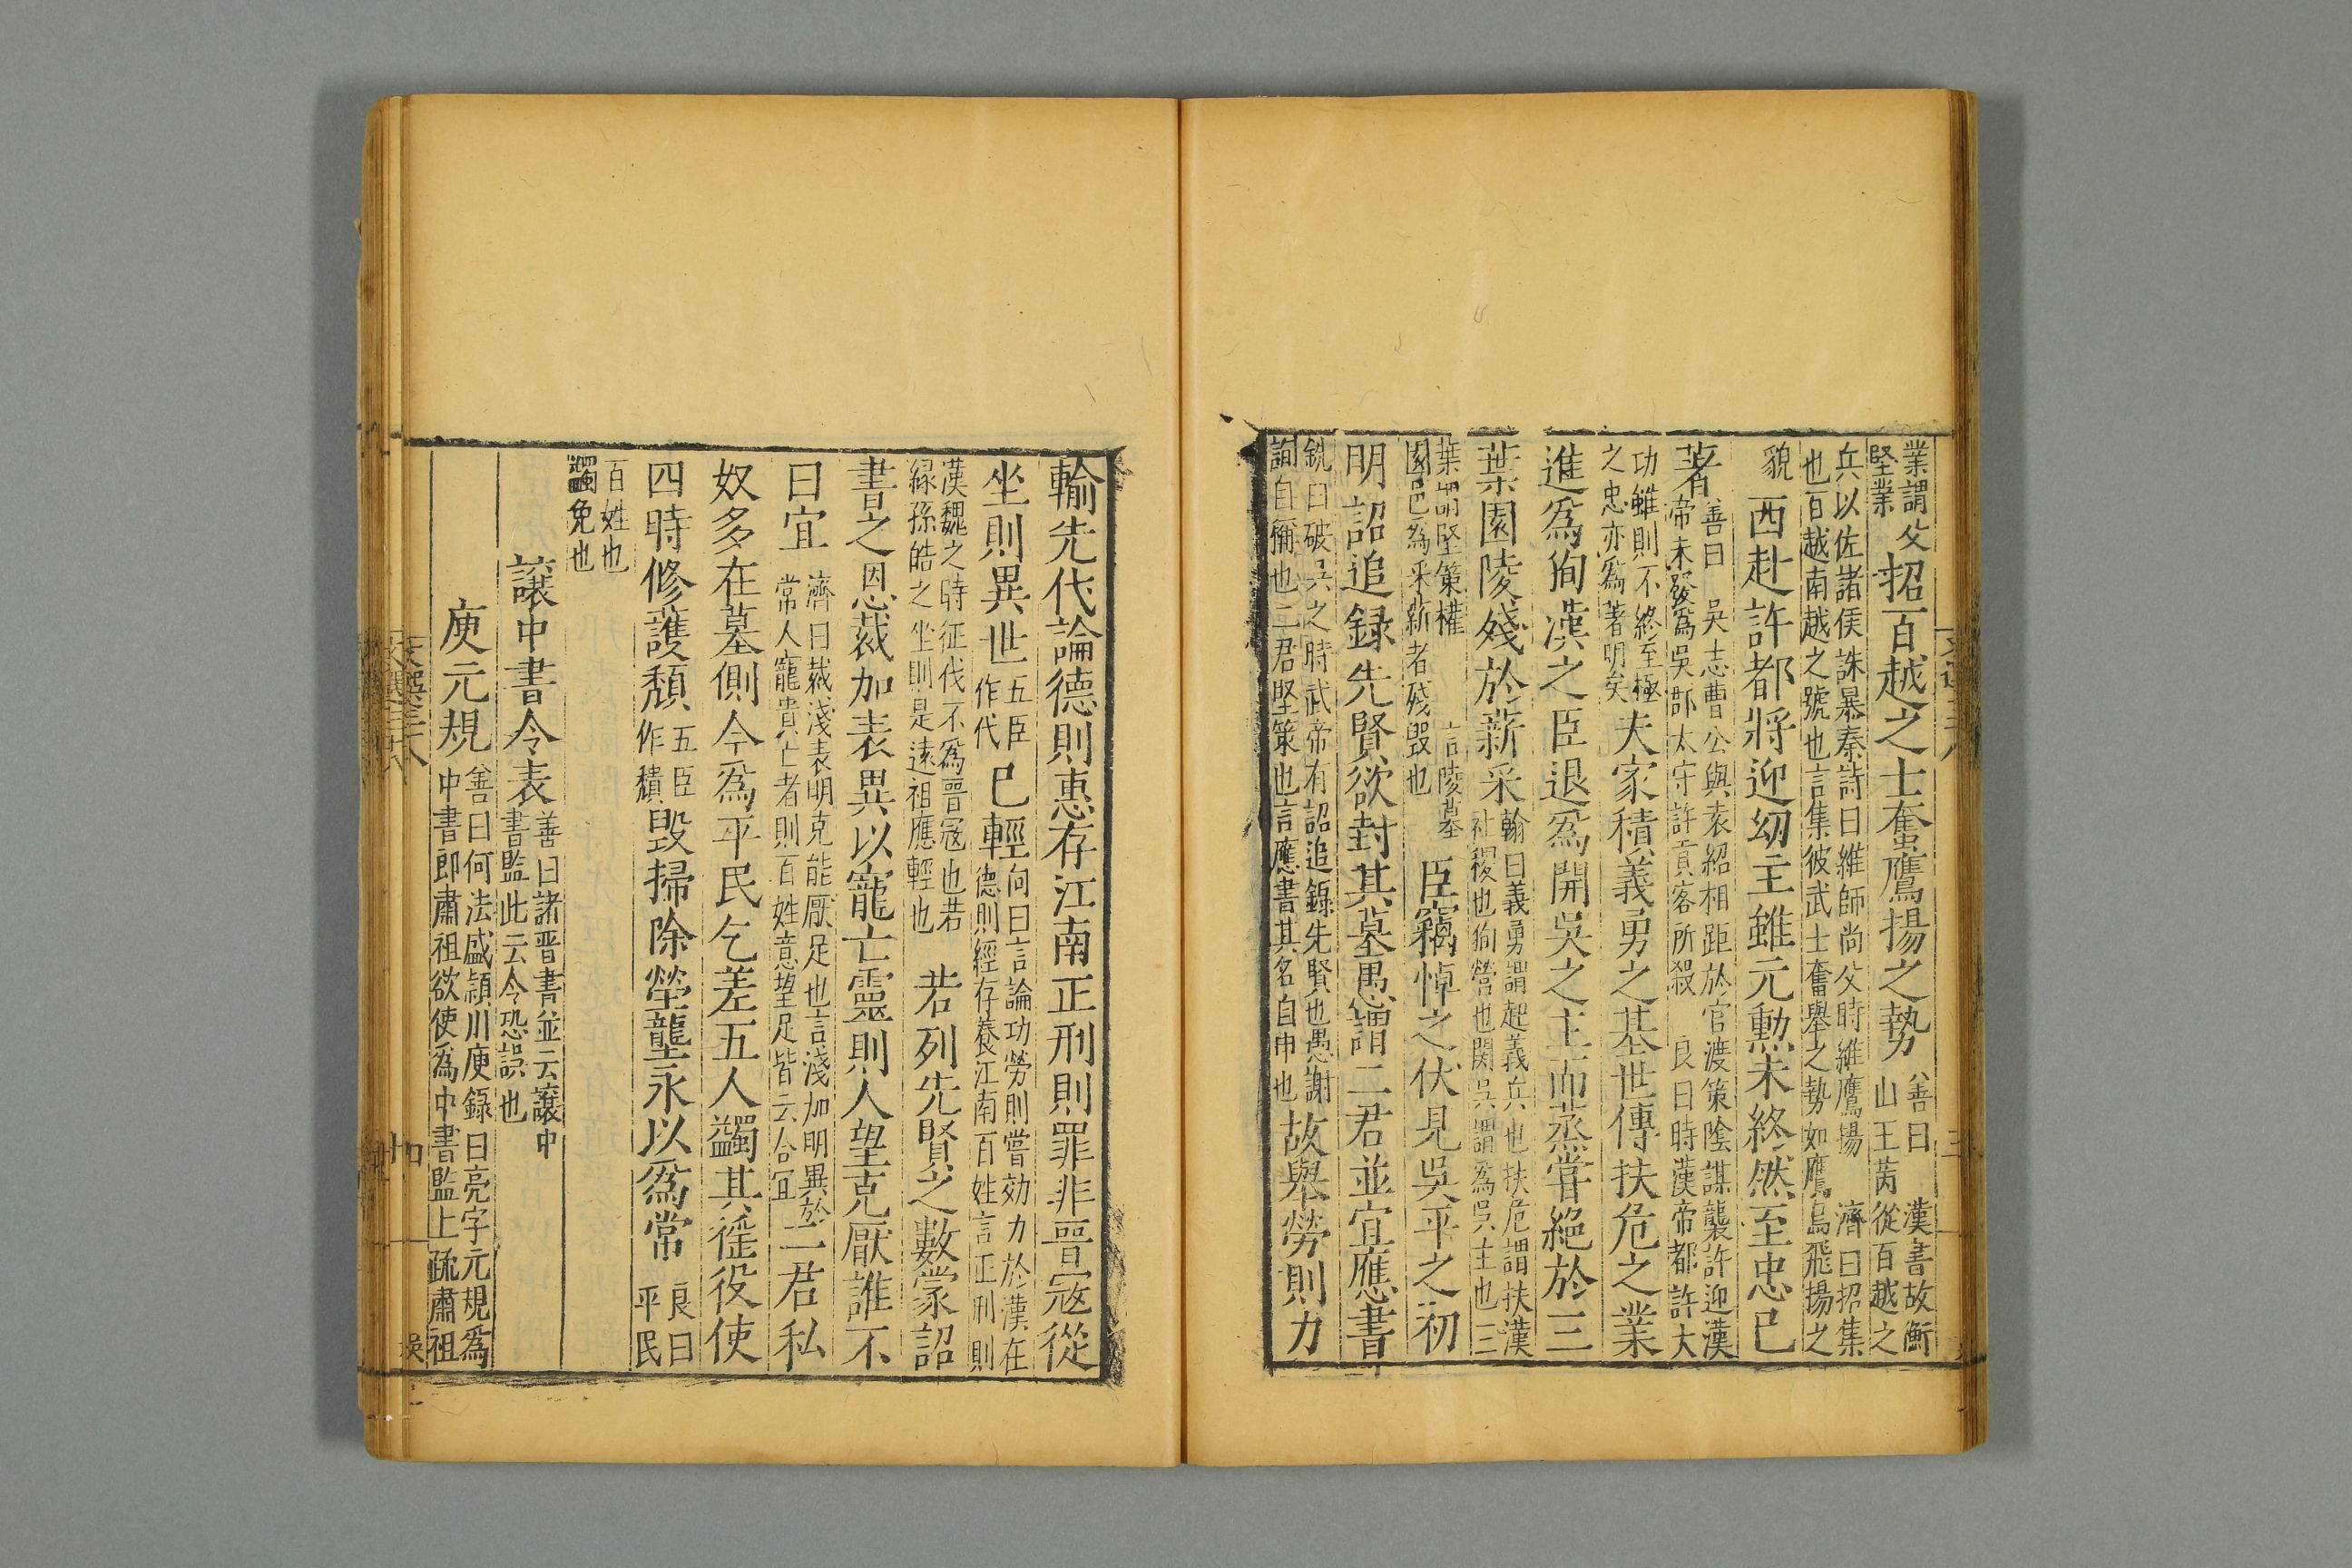 業謂父堅業招百越之士奮鷹揚之勢善曰漢書故衡山王芮從百越之
兵以佐諸侯誅暴秦詩曰維師尚父時維鷹揚濟曰招集也百越南越之號也言集彼武士奮舉之勢如鷹鳥飛揚之
貌西赴許都將迎幼主雖元勳未終然至忠已
著善曰吳志曹公與袁紹相距於官渡策陰謀襲許迎漢帝未發爲吳郡太守許貢客所殺良曰時漢帝都許大
功雖則不終至極之忠亦爲著明矣夫家積義勇之基世傳扶危之業
進爲徇漢之臣退爲開吳之主而蒸甞絕於三
葉園陵殘於薪采翰曰義勇謂起義兵也扶危謂扶漢社稷也徇營也開吳謂爲吳主也三
葉謂堅策權言陵墓園已爲采薪者殘毀也臣竊悼之伏見吳平之初
明詔追録先賢欲封其墓愚謂二君並宜應書
銑曰破吳之時武帝有詔追錄先賢也愚謝詢自稱也二君堅策也言應書其名自申也故舉勞則力
輸先代論德則惠存江南正刑則罪非晉寇從
坐則異世五臣作代已輕向曰言論功勞則嘗効力於漢在德則經存養江南百姓言正刑則
漢魏之時征伐不爲晉寇也若緑孫皓之坐則是遠祖應輕也若列先賢之數蒙詔
書之恩裁加表異以寵亡靈則人望克厭誰不
曰宜濟曰裁淺表明克能厭足也言淺加明異於常人寵貴亡者則百姓意望足皆云合宜二君私
奴多在墓側今爲平民乞差五人蠲其徭役使
四時修護頹五臣作穨毀掃除塋壟永以爲常良曰平民
百姓也蠲免也
讓中書令表善曰諸晋書並云讓中書監此云令恐誤也
庾元規善曰何法盛頴川庾錄曰亮字元規爲中書郎肅祖欲使爲中書監上疏肅祖